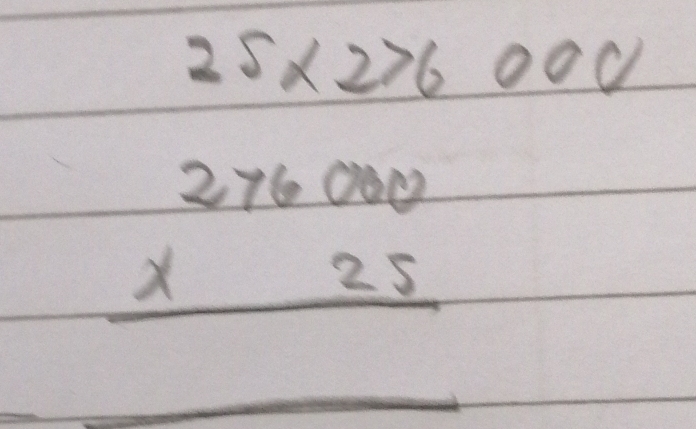 25x276 000
276 000
x 25